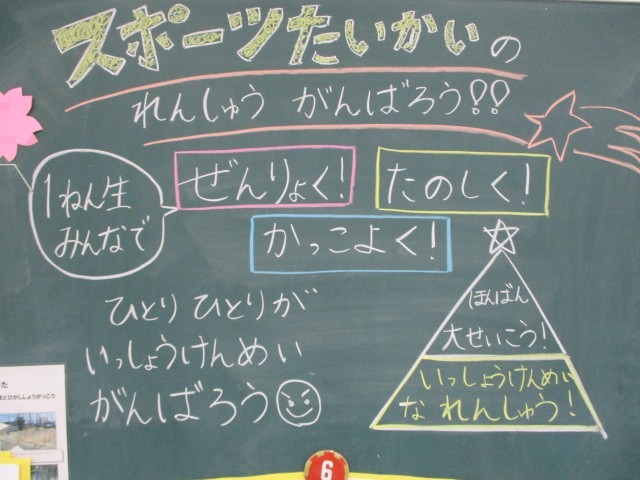 スポーツたいかいの
れんしゅう がんばろう!!
1ねん生
みんなで
ぜんりょく!
たのしく!
かっこよく!
ひとりひとりが
いっしょうけんめい
がんばろう
ほんばん
大せいこう!
いっしょうけんめい
な れんしゅう!
6